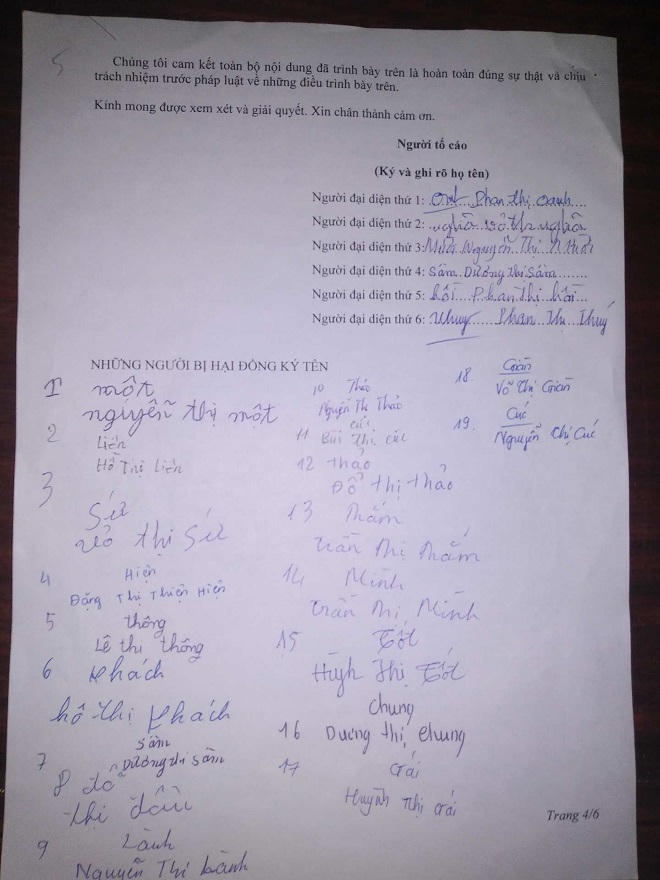 Chúng tôi cam kết toàn bộ nội dung đã trình bày trên là hoàn toàn đúng sự thật và chịu
trách nhiệm trước pháp luật về những điều trình bày trên.
Kính mong được xem xét và giải quyết. Xin chân thành cảm ơn.
Người tố cáo
(Ký và ghi rõ họ tên)
Người đại diện thứ 1: Phan thị oanh
Người đại diện thứ 2: nghĩa võ thị nghĩa
Người đại diện thứ 3: Nguyễn Thị
Người đại diện thứ 4: Sâm Dương thị Sâm
Người đại diện thứ 5: hồi Phan thị hồi
Người đại diện thứ 6: Thuý Phan Thị Thuý
NHỮNG NGƯỜI BỊ HẠI ĐỒNG KÝ TÊN
1 một
nguyễn thị một
2 Liên
Hồ Thị Liên
3
Sứ
võ thị Sứ
4 Hiện
Đặng Thị Thiện Hiện
5 thông
Lê thị thông
6 Khách
hồ thị Khách
7 Sâm
Dương thi Sâm
8 đỗ
thị đầu
9 Lành
Nguyễn Thị Lành
10 Thảo
Nguyễn Thị Thảo
11 cúc
Bùi Thị cúc
12 thảo
Đỗ thị thảo
13 Thắm
trần Thị Thắm
14 Minh
trần Thị Minh
15 Tốt
Hùynh Thị Tốt
16 chung
Dương thị chung
17 Gái
Huỳnh Thị Gái
18. Giàn
Võ Thị Giàn
19. Cúc
Nguyễn Thị Cúc
Trang 4/6